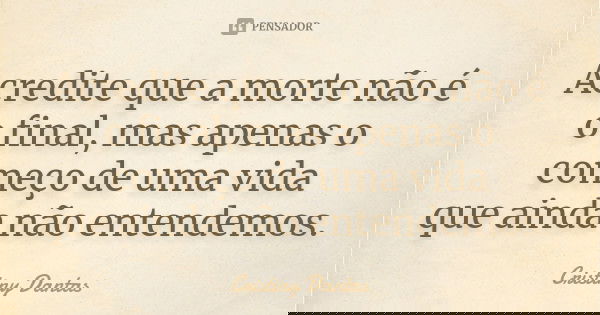 PENSADOR
Acredite que a morte não é
o final, mas apenas o
começo de uma vida
que ainda não entendemos.
Cristiny Dantas